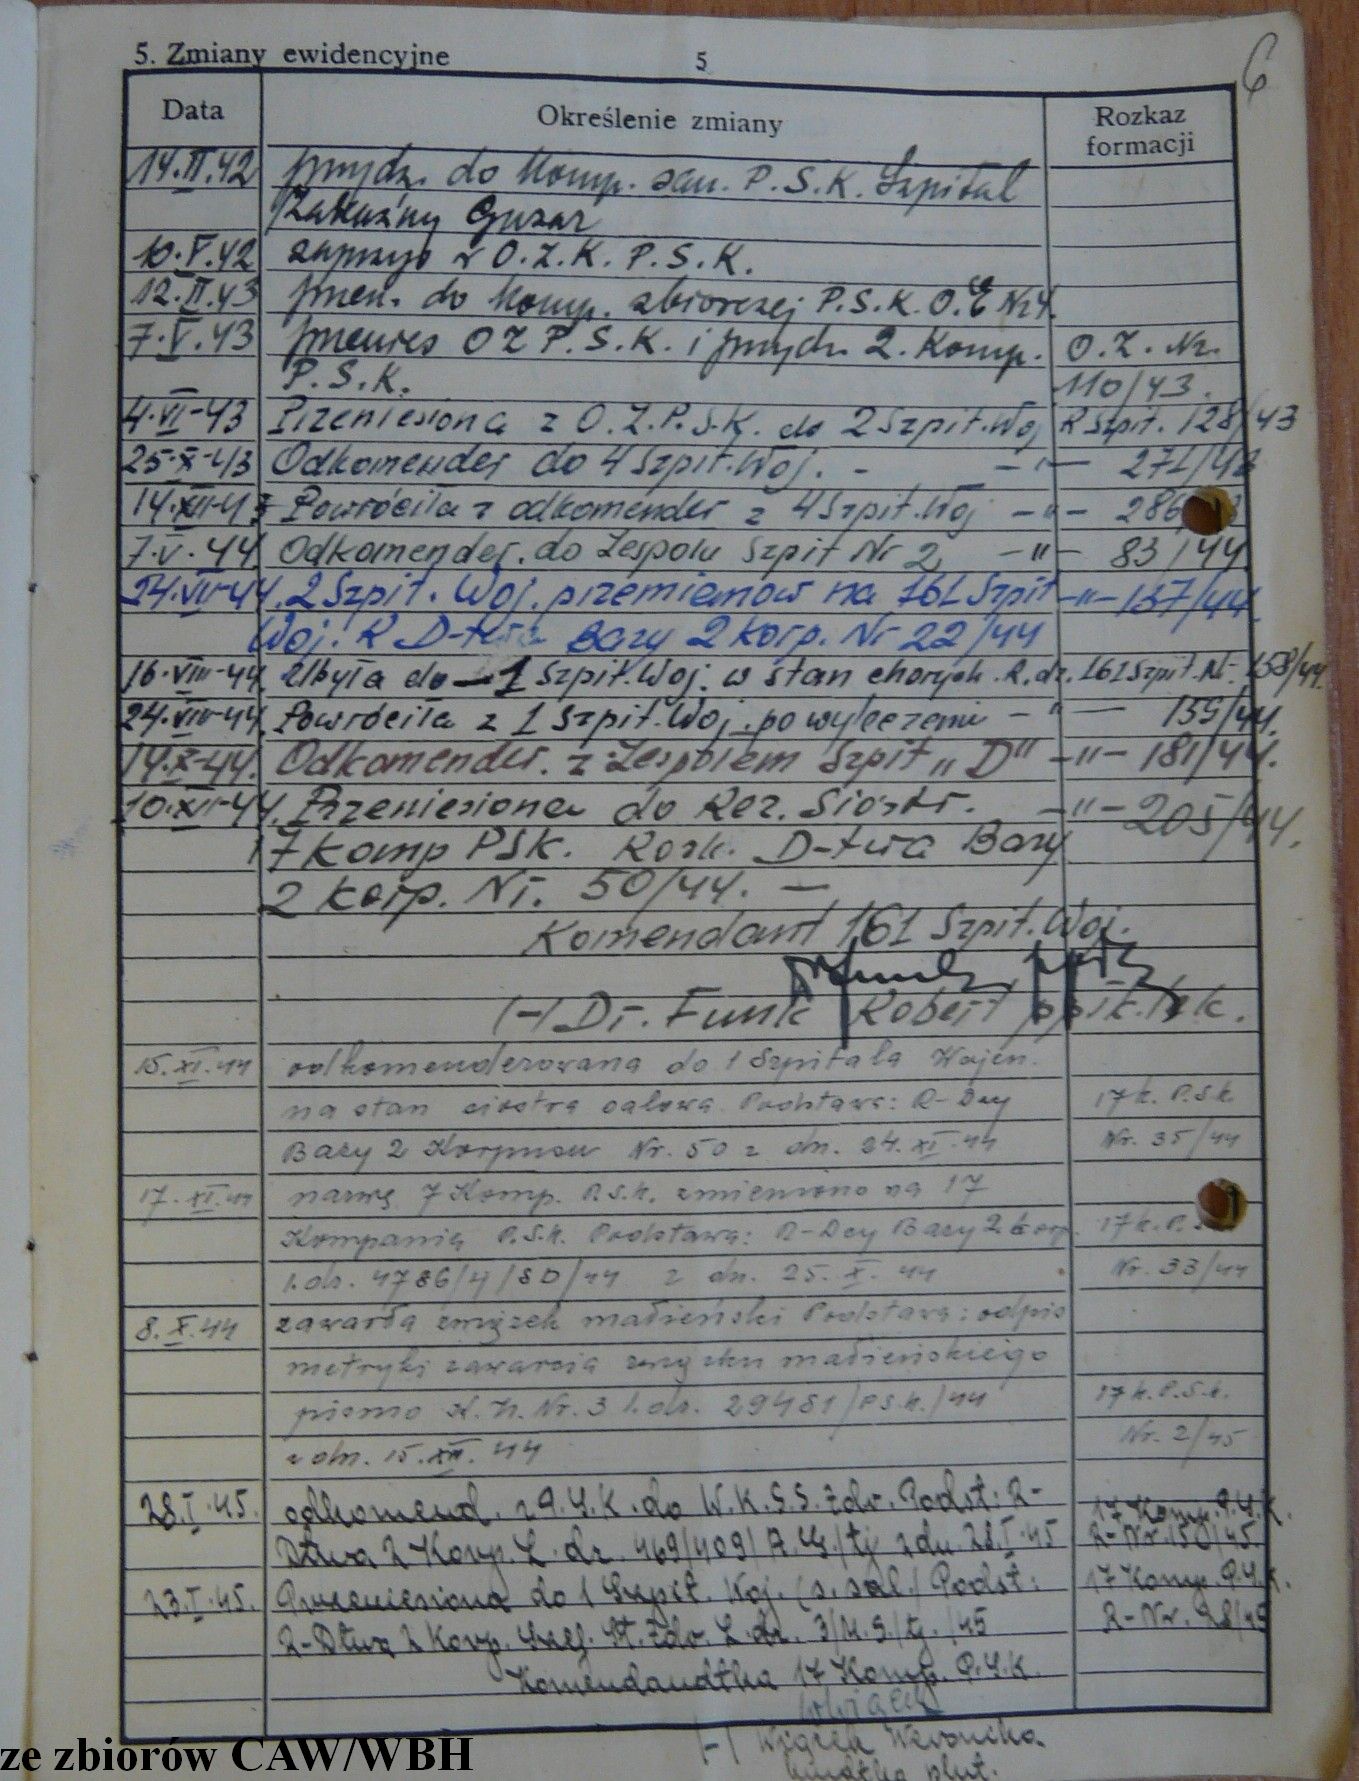 5. Zmiany ewidencyjne 5 6
Data Określenie zmiany Rozkaz formacji
14.II.42 przydz. do Komp. san. P.S.K. Szpital
Zakaźny Guzar
10.V.42 O.Z.K. P.S.K.
12.II.43 przen. do Komp. zbiorczej P.S.K. O. Nr 4.
7.V.43 OZ P.S.K. i przydz. 2. Komp. O.Z. Nr.
P.S.K. 110/43.
4.VI-43 Przeniesiona z O.Z.P.S.K. do 2 Szpit. Woj R Szpit. 128/43
25.X-43 Odkomender do 4 Szpit. Woj. - -"- 271/43
14.XII-43 Powróciła z odkomender z 4 Szpit. Woj -"- 286
7.V.44 Odkomender. do Zespołu Szpit Nr 2 -"- 83/44
24.VII-44. 2 Szpit. Woj. przemianow na 161 Szpit -"- 137/44.
Woj. R D-twa Bazy 2 Korp. Nr 22/44
16.VIII-44. Ubyła do 1 Szpit. Woj. w stan chorych. R.dz. 161 Szpit. Nr 158/44.
24.VIII-44. Powróciła z 1 Szpit. Woj. po wyleczeniu -"- 159/44.
14.X-44. Odkomender. z Zespołem Szpit „D" -"- 181/44.
10.XII-44. Przeniesiona do Rez. Siostr. -"- 205/44.
17 Komp PSK. Rozk. D-twa Bazy
2 Korp. Nr. 50/44. —
Komendant 161 Szpit. Woj.
(-) Dr. Funk Robert ppłk. lek.
15.XI.44 odkomenderowana do 1 Szpitala Wojen.
na stan siostra salowa. Podstawa: R-Dcy 17 k. P.S.K
Bazy 2 Korpusu Nr. 50 z dn. 24.XI.44 Nr. 35/44
17.XI.44 nazwę 7 Komp. P.S.K. zmieniono na 17
Kompanię P.S.K. Podstawa: R-Dcy Bazy 2 Korp. 17 k. P.S
l.dz. 4786/4/SD/44 z dn. 25.X.44 Nr. 33/44
8.X.44 zawarła związek małżeński Podstawa: odpis
metryki zawarcia związku małżeńskiego
pismo Nr. 3 l.dz. 29481/PSK./44 17 k. P.S.K.
z dn. 15.XII.44 Nr. 2/45
28.I.45. odkomend. z P.S.K. do W.K.S.S. Zdr. Podst: R- 17 Komp. P.S.K.
Dtwa 2 Korp. L.dz. 469/409/ /tj z dn. 28.I.45 R-Nr. 150/45
23.I.45. Przeniesiona do 1 Szpit. Woj. (s. sal.) Podst: 17 Komp. P.S.K.
R-Dtwa 2 Korp. Szef. Sł. Zdr. L.dz. 3/ /tj./45 R-Nr. 28/45
Komendantka 17 Komp. P.S.K.
(-) Wiącek Weronika
plut.
ze zbiorów CAW/WBH